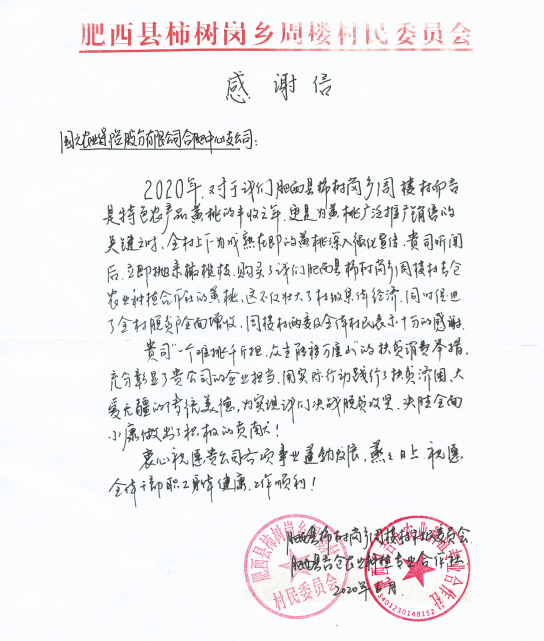 肥西县柿树岗乡周楼村民委员会
感谢信
国元农业保险股份有限公司合肥中心支公司:
2020年,对于我们肥西县柿树岗乡周楼村而言
是特色农产品黄桃的丰收之年,更是为黄桃广泛推广销售的
关键之时,全村上下为成熟在即的黄桃深入做化宣传,贵司听闻
后,立即抛来橄榄枝,购买了我们肥西县柿树岗乡周楼村吉仓
农业种植合作社的黄桃,这不仅壮大了村级集体经济,同时促进
了全村脱贫户全面增收,周楼村两委及全体村民表示十分的感谢.
贵司“一个难挑千斤担,众生能移万座山”的扶贫消费举措,
充分彰显了贵公司的企业担当,用实际行动践行了扶贫济困、大
爱无疆的传统美德,为实现我们决战脱贫攻坚、决胜全面
小康做出了积极的贡献!
衷心祝愿贵公司各项事业蓬勃发展,蒸蒸日上.祝愿
全体干部职工身体健康,工作顺利!
肥西县柿树岗乡周楼村民委员会
肥西县吉仓农业种植专业合作社
2020年 月
村民委员会
3401230148152